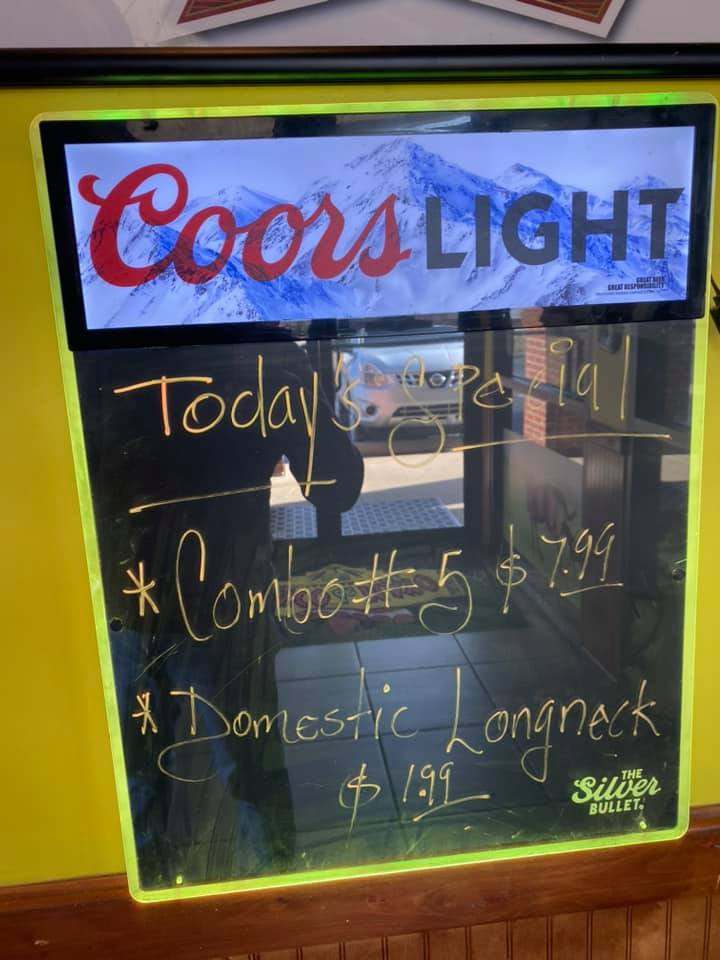 Coors LIGHT
GREAT BEER
GREAT RESPONSIBILITY
Today's Special
* Combo #5 $7.99
* Domestic Longneck
$1.99
THE
Silver
BULLET.